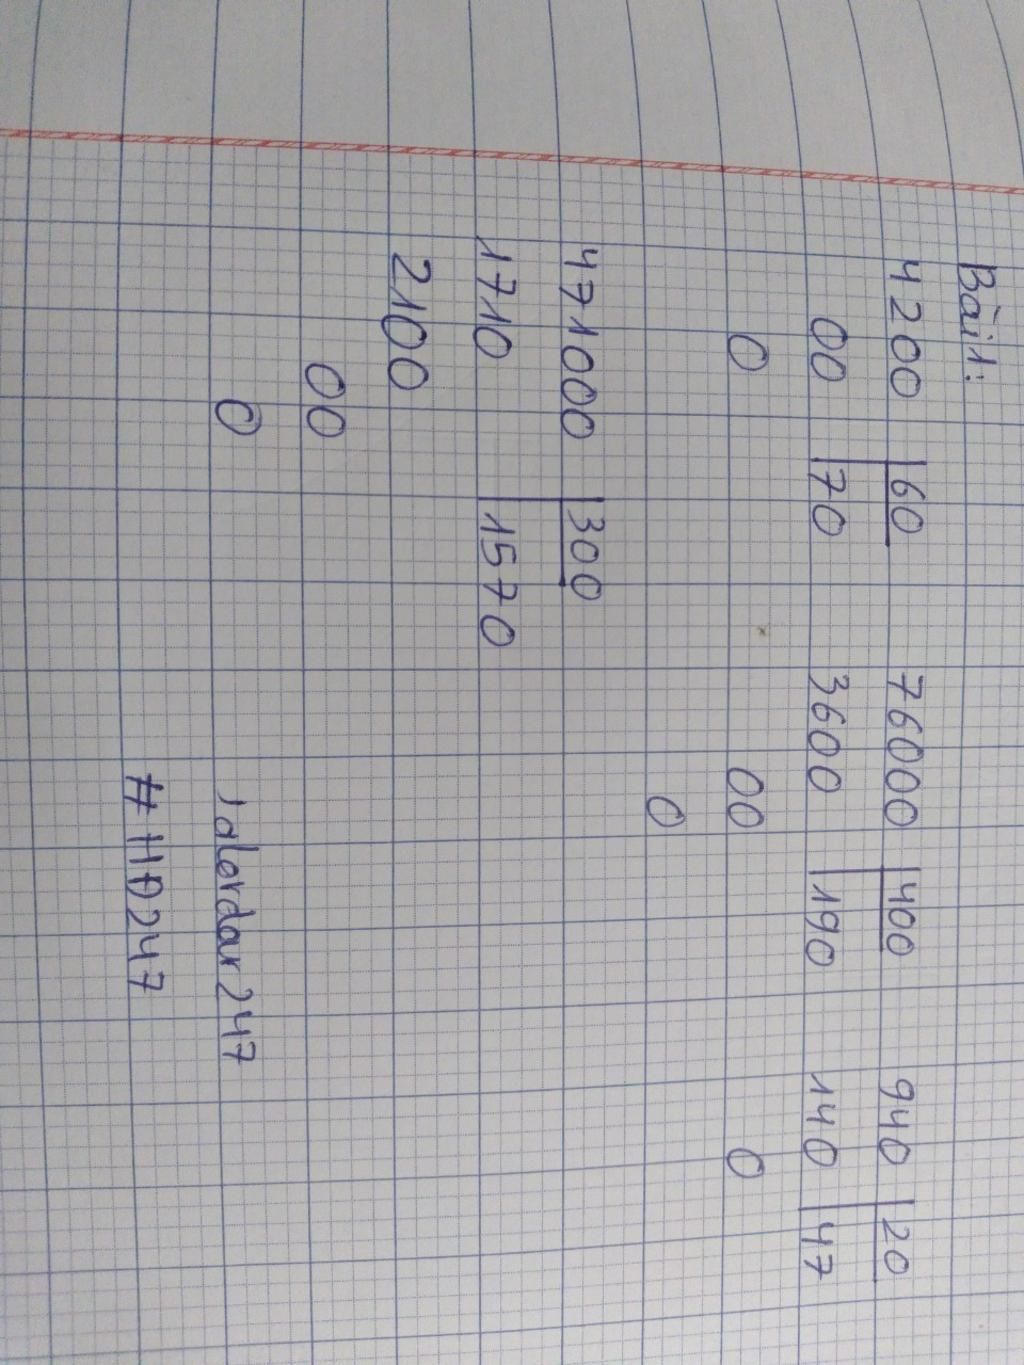 Bài 1:
4200 60 76000 400 940 20
00 70 3600 190 140 47
0 00 0
0
471000 300
1710 1570
2100
00
0 dlerdar247
#HD247